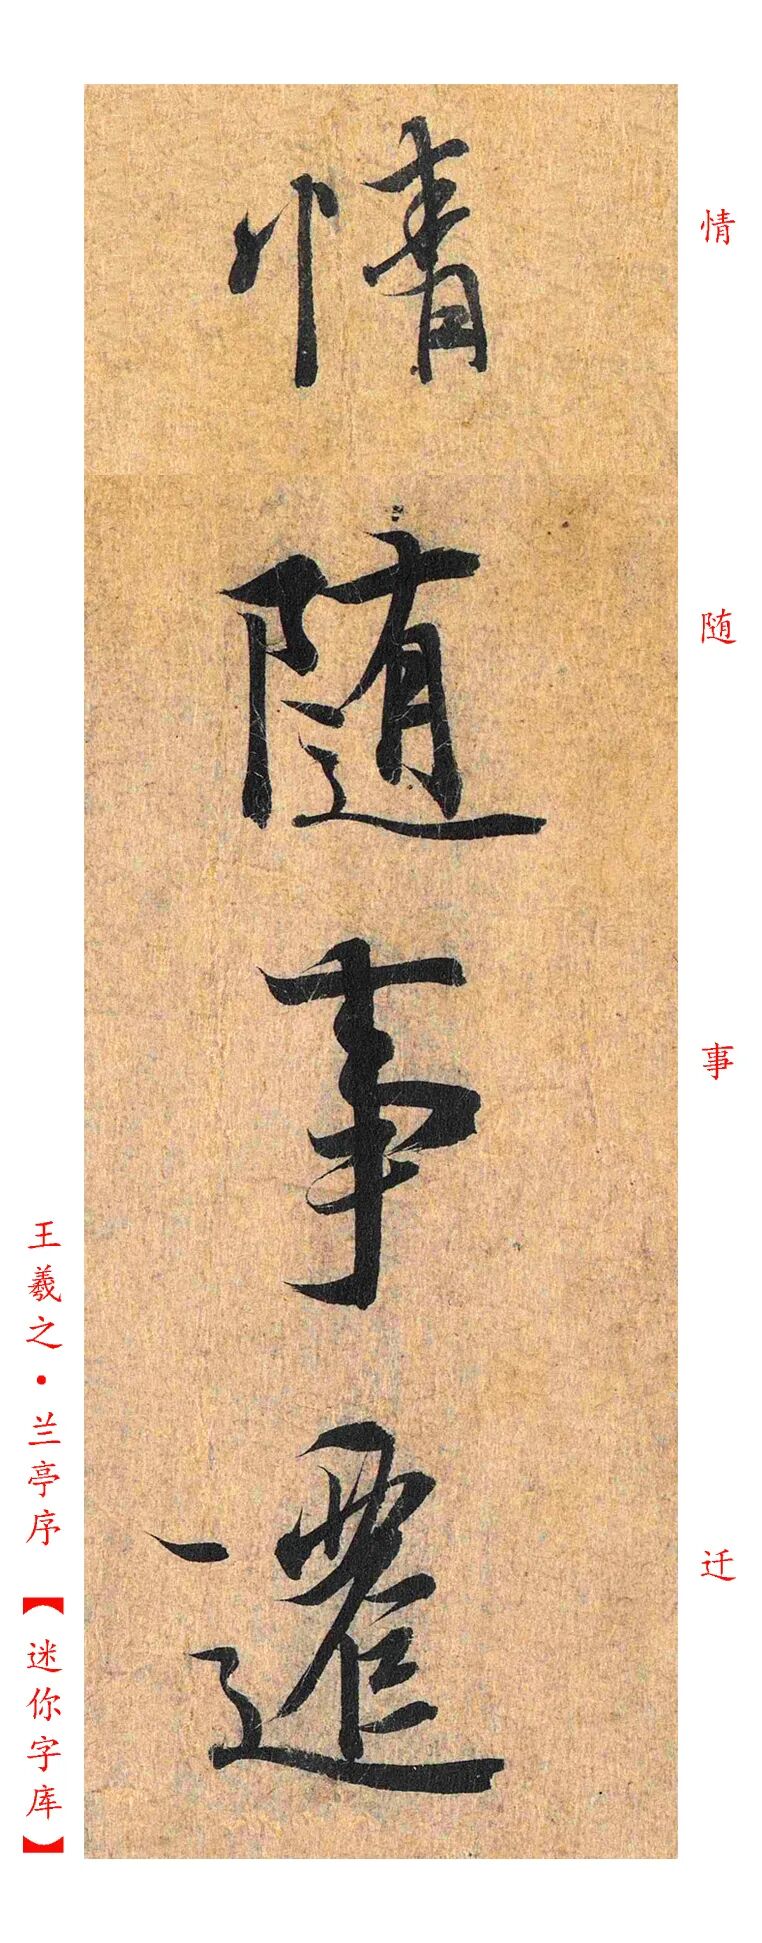 情随事迁
情
随
事
迁
王羲之·兰亭序【迷你字库】